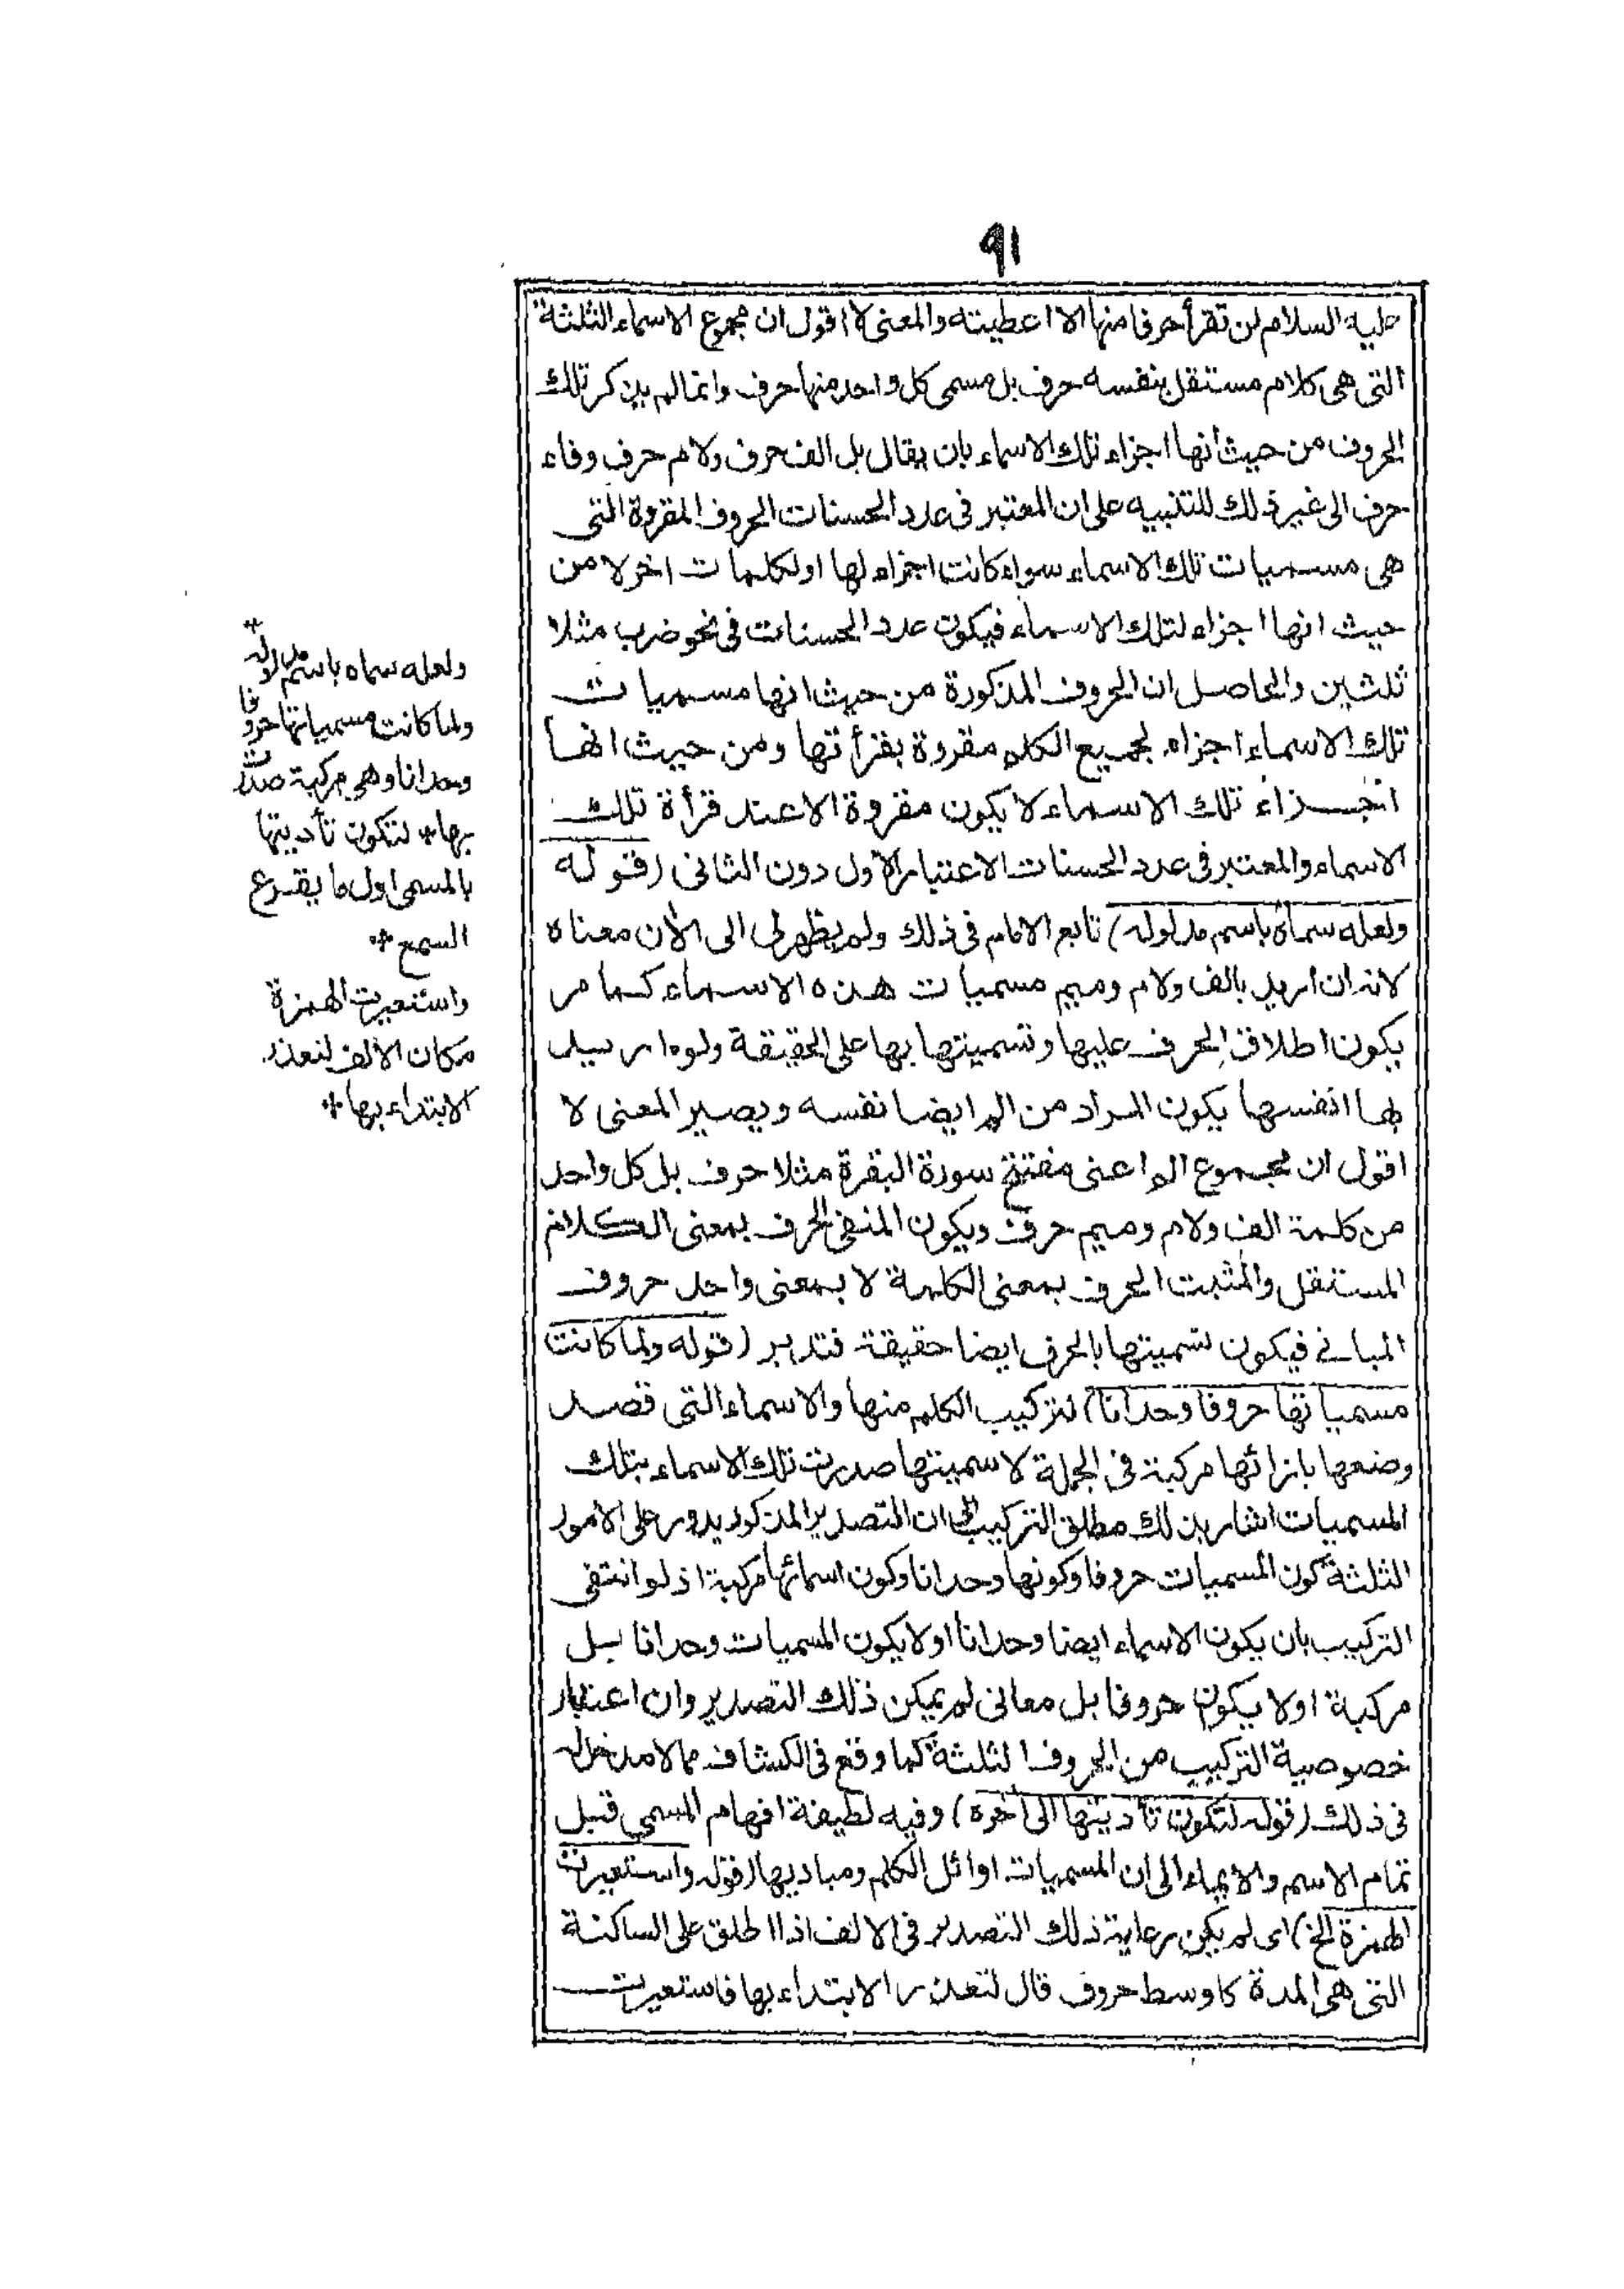 ٩١
عليه السلام لن تقرأ حرفا منها الا اعطيته والمعنى لا اقول ان مجموع الاسماء الثلثة
التى هى كلام مستقل بنفسه حرف بل مسمى كل واحد منها حرف وانما لم يذكر تلك
الحروف من حيث أنها اجزاء تلك الاسماء بان يقال بل الف حرف ولام حرف وفاء
حرف الى غير ذلك للتنبيه على ان المعتبر فى عدد الحسنات الحروف المقروة التى
هى مسميات تلك الاسماء سواء كانت اجزاء لها او لكلمات اخر لا من
حيث انها اجزاء لتلك الاسماء فيكون عدد الحسنات فى نحو ضرب مثلا
ثلثين والحاصل ان الحروف المذكورة من حيث انها مسميات
تلك الاسماء اجزاء لجميع الكلم مقروة بقرأتها ومن حيث انها
اجزاء تلك الاسماء لا يكون مقروة الا عند قرأة تلك
الاسماء والمعتبر فى عدد الحسنات الاعتبار الاول دون الثانى (قوله
ولعله سماه باسم مدلوله) تابع الامام فى ذلك ولم يظهر لى الى الأن معناه
لانه ان أريد بالف ولام وميم مسميات هذه الاسماء كما مر
يكون اطلاق الحرف عليها وتسميتها بها على الحقيقة ولو اريد
بها انفسها يكون المراد من الم ايضا نفسه ويصير المعنى لا
اقول ان مجموع الم اعنى مفتتح سورة البقرة مثلا حرف بل كل واحد
من كلمة الف ولام وميم حرف ويكون المنفى الحرف بمعنى الكلام
المستقل والمثبت الحرف بمعنى الكلمة لا بمعنى واحد حروف
المبانى فيكون تسميتها بالحرف ايضا حقيقة فتدبر (قوله ولما كانت
مسمياتها حروفا وحدانا) لتركيب الكلم منها والاسماء التى قصد
وضعها بازائها مركبة فى الجملة لاسميتها صدرت تلك الاسماء بتلك
المسميات اشار بذلك مطلق التركيب الى ان التصدير المذكور يدور على الامور
الثلثة كون المسميات حروفا وكونها وحدانا وكون اسمائها مركبة اذ لو انتفى
التركيب بان يكون الاسماء ايضا وحدانا او لا يكون المسميات وحدانا بل
مركبة اولا يكون حروفا بل معانى لم يمكن ذلك التصدير وان اعتبار
خصوصية التركيب من الحروف الثلثة كما وقع فى الكشاف مما لا مدخل له
فى ذلك (قوله لتكون تأديتها الى آخره) وفيه لطيفة افهام المسمى قبل
تمام الاسم والايماء الى ان المسميات اوائل الكلم ومباديها (قوله واستعيرت
الهمزة الخ) اى لم يكن رعاية ذلك التصدير فى الالف اذا اطلق على الساكنة
التى هى المدة كاوسط حروف قال لتعذر الابتداء بها فاستعيرت
ولعله سماه باسم مدلوله*
ولما كانت مسمياتها حروفا
وحدانا وهى مركبة صدرت
بها* لتكون تأديتها
بالمسمى اول ما يقرع
السمع*
واستعيرت الهمزة
مكان الالف لتعذر
الابتداء بها*